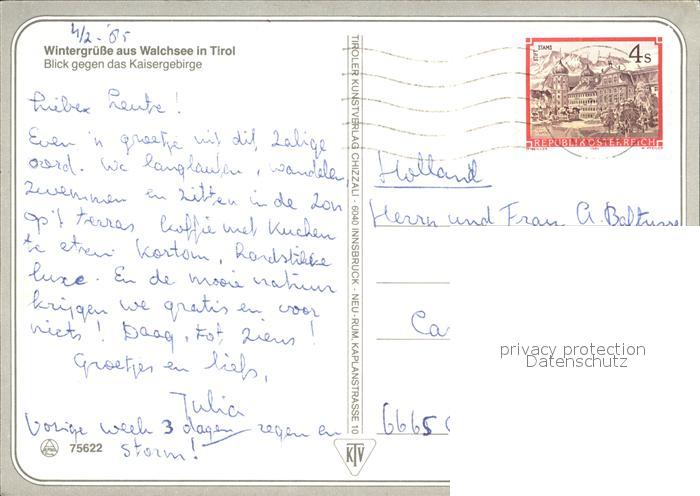 4/2-'85
Wintergrüße aus Walchsee in Tirol
Blick gegen das Kaisergebirge
Liebex Leute!
Even 'n groetje uit dit zalige
oord. We langlaufen, wandelen,
zwemmen en zitten in de zon
op 't terras koffie met Kuchen
te eten. Kortom, hardstikke
luxe. En de mooie natuur
krijgen we gratis en voor
niets! Daag, tot ziens!
Groetjes en liefs,
Julia
Vorige week 3 dagen regen en
storm!
75622
TIROLER KUNSTVERLAG CHIZZALI · 6040 INNSBRUCK · NEU-RUM, KAPLANSTRASSE 10
KTV
STIFT STAMS
4s
REPUBLIK ÖSTERREICH
Holland
Herrn und Frau A. Baltusse
Ca
6665
privacy protection
Datenschutz